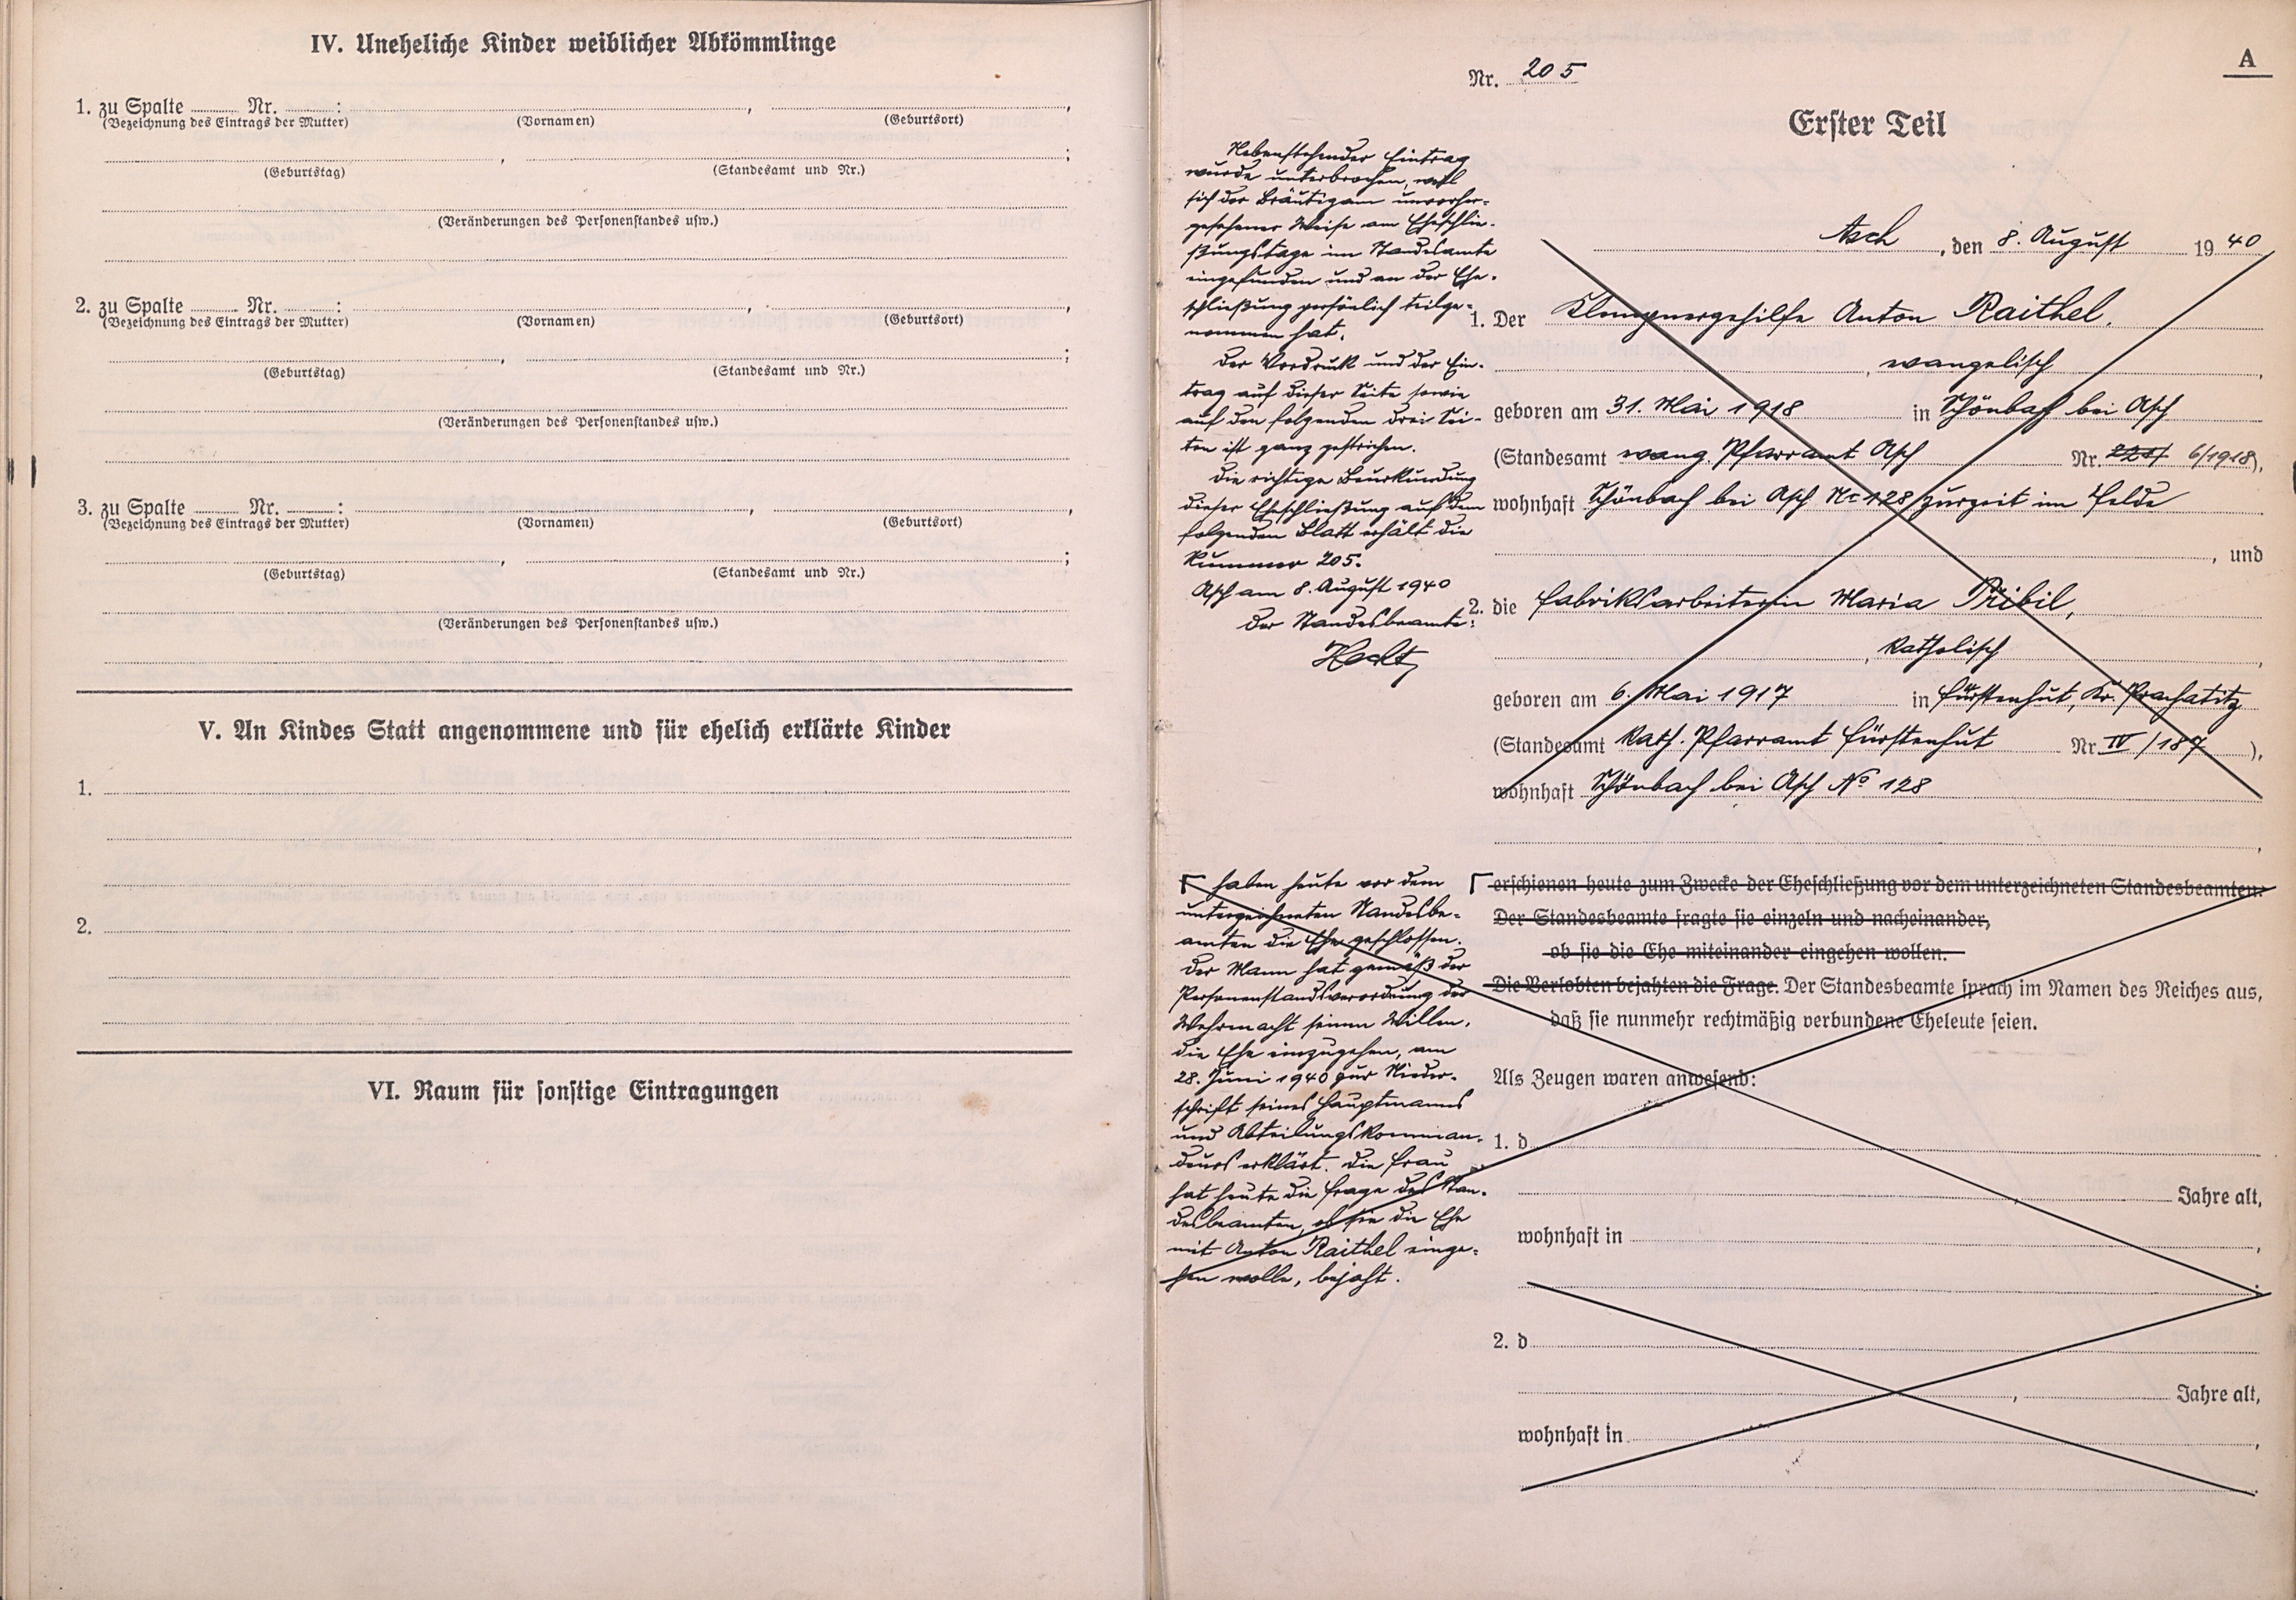 IV. Uneheliche Kinder weiblicher Abkömmlinge
1. zu Spalte ........ Nr. ........ : ........ , ........ ,
(Bezeichnung des Eintrags der Mutter) (Vornamen) (Geburtsort)
........ , ........ ;
(Geburtstag) (Standesamt und Nr.)
(Veränderungen des Personenstandes usw.)
2. zu Spalte ........ Nr. ........ : ........ , ........ ,
(Bezeichnung des Eintrags der Mutter) (Vornamen) (Geburtsort)
........ , ........ ;
(Geburtstag) (Standesamt und Nr.)
(Veränderungen des Personenstandes usw.)
3. zu Spalte ........ Nr. ........ : ........ , ........ ,
(Bezeichnung des Eintrags der Mutter) (Vornamen) (Geburtsort)
........ , ........ ;
(Geburtstag) (Standesamt und Nr.)
(Veränderungen des Personenstandes usw.)
V. An Kindes Statt angenommene und für ehelich erklärte Kinder
1.
2.
VI. Raum für sonstige Eintragungen
A
Nr. 205
Erster Teil
Nebenstehender Eintrag
wurde unterbrochen, weil
sich der Bräutigam unvorher-
gesehener Weise am Eheschlie-
ßungstage im Standesamte
eingefunden und an der Ehe-
schließung persönlich teilge-
nommen hat.
Der Vordruck und der Ein-
trag auf dieser Seite sowie
auf den folgenden drei Sei-
ten ist ganz gestrichen.
Die richtige Beurkundung
dieser Eheschließung auf dem
folgenden Blatt erhält die
Nummer 205.
Asch am 8. August 1940
Der Standesbeamte:
Asch, den 8. August 1940
1. Der Klempnergehilfe Anton Raithel,
, evangelisch ,
geboren am 31. Mai 1918 in Schönbach bei Asch
(Standesamt evang. Pfarramt Asch Nr. 6/1918),
wohnhaft Schönbach bei Asch No 128, zurzeit im Felde
, und
2. die Fabriksarbeiterin Maria Přibil,
, katholisch ,
geboren am 6. Mai 1917 in Fürstenhut, Kr. Prachatitz
(Standesamt kath. Pfarramt Fürstenhut Nr. IV/187 ),
wohnhaft Schönbach bei Asch No 128
,
Γ haben heute vor dem
unterzeichneten Standesbe-
amten die Ehe geschlossen.
Der Mann hat gemäß der
Personenstandsverordnung der
Wehrmacht seinen Willen,
die Ehe einzugehen, am
28. Juni 1940 zur Nieder-
schrift seines Hauptmanns
und Abteilungskomman-
deurs erklärt. Die Frau
hat heute die Frage des Stan-
desbeamten, ob sie die Ehe
mit Anton Raithel einge-
hen wolle, bejaht.
Γ erschienen heute zum Zwecke der Eheschließung vor dem unterzeichneten Standesbeamten.
Der Standesbeamte fragte sie einzeln und nacheinander,
ob sie die Ehe miteinander eingehen wollen.
Die Verlobten bejahten die Frage. Der Standesbeamte sprach im Namen des Reiches aus,
daß sie nunmehr rechtmäßig verbundene Eheleute seien.
Als Zeugen waren anwesend:
1. d
, ........ Jahre alt,
wohnhaft in ........ ,
.
2. d
, ........ Jahre alt,
wohnhaft in ........ ,
.